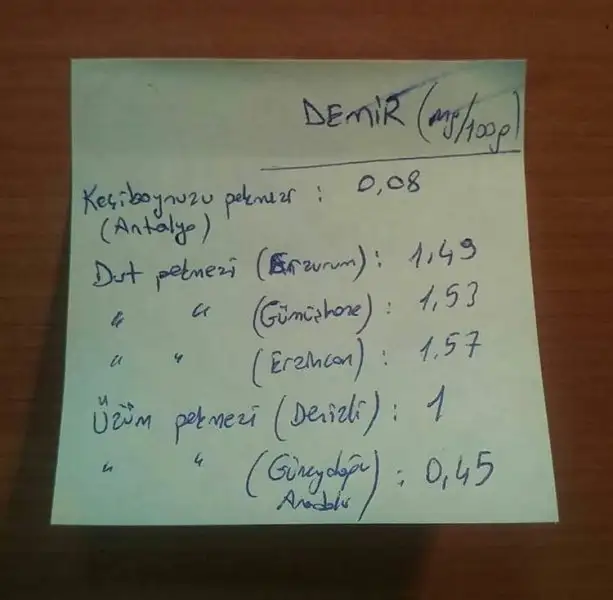 DEMİR (mg/100g)
Keçiboynuzu pekmezi : 0,08
(Antalya)
Dut pekmezi (Erzurum) : 1,49
" " (Gümüşhane) : 1,53
" " (Erzincan) : 1,57
Üzüm pekmezi (Denizli) : 1
" " (Güneydoğu : 0,45
Anadolu)